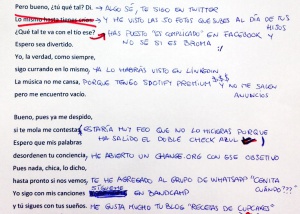 Pero bueno, ¿tú qué tal? Di. → ALGO SÉ, TE SIGO EN TWITTER
Lo mismo hasta tienes crios Y ME VISTO LAS 50 FOTOS QUE SUBES AL DÍA DE TUS HIJOS
¿Qué tal te va con el tío ese? HAS PUESTO "ES COMPLICADO" EN FACEBOOK Y
Espero sea divertido. NO SÉ SI ES BROMA :)
Yo, la verdad, como siempre,
sigo currando en lo mismo. YA LO HABRÁS VISTO EN LINKEDIN
La música no me cansa, PORQUE TENGO SPOTIFY PREMIUM $$$ Y NO ME SALEN ANUNCIOS
Bueno, pues ya me despido,
si te mola me contestas, ESTARÍA MUY FEO QUE NO LO HICIERAS PORQUE
Espero que mis palabras HA SALIDO EL DOBLE CHECK AZUL
desordenen tu conciencia, HE ABIERTO UN CHANGE.ORG CON ESE OBJETIVO
Pues nada, chica, lo dicho,
hasta pronto si nos vemos, TE HE AGREGADO AL GRUPO DE WHATSAPP "CENITA CUÁNDO???"
Yo sigo con mis canciones SÍGUEME EN BANDCAMP
y tú sigues con tus sueños. ME GUSTA MUCHO TU BLOG "RECETAS DE CUPCAKES"